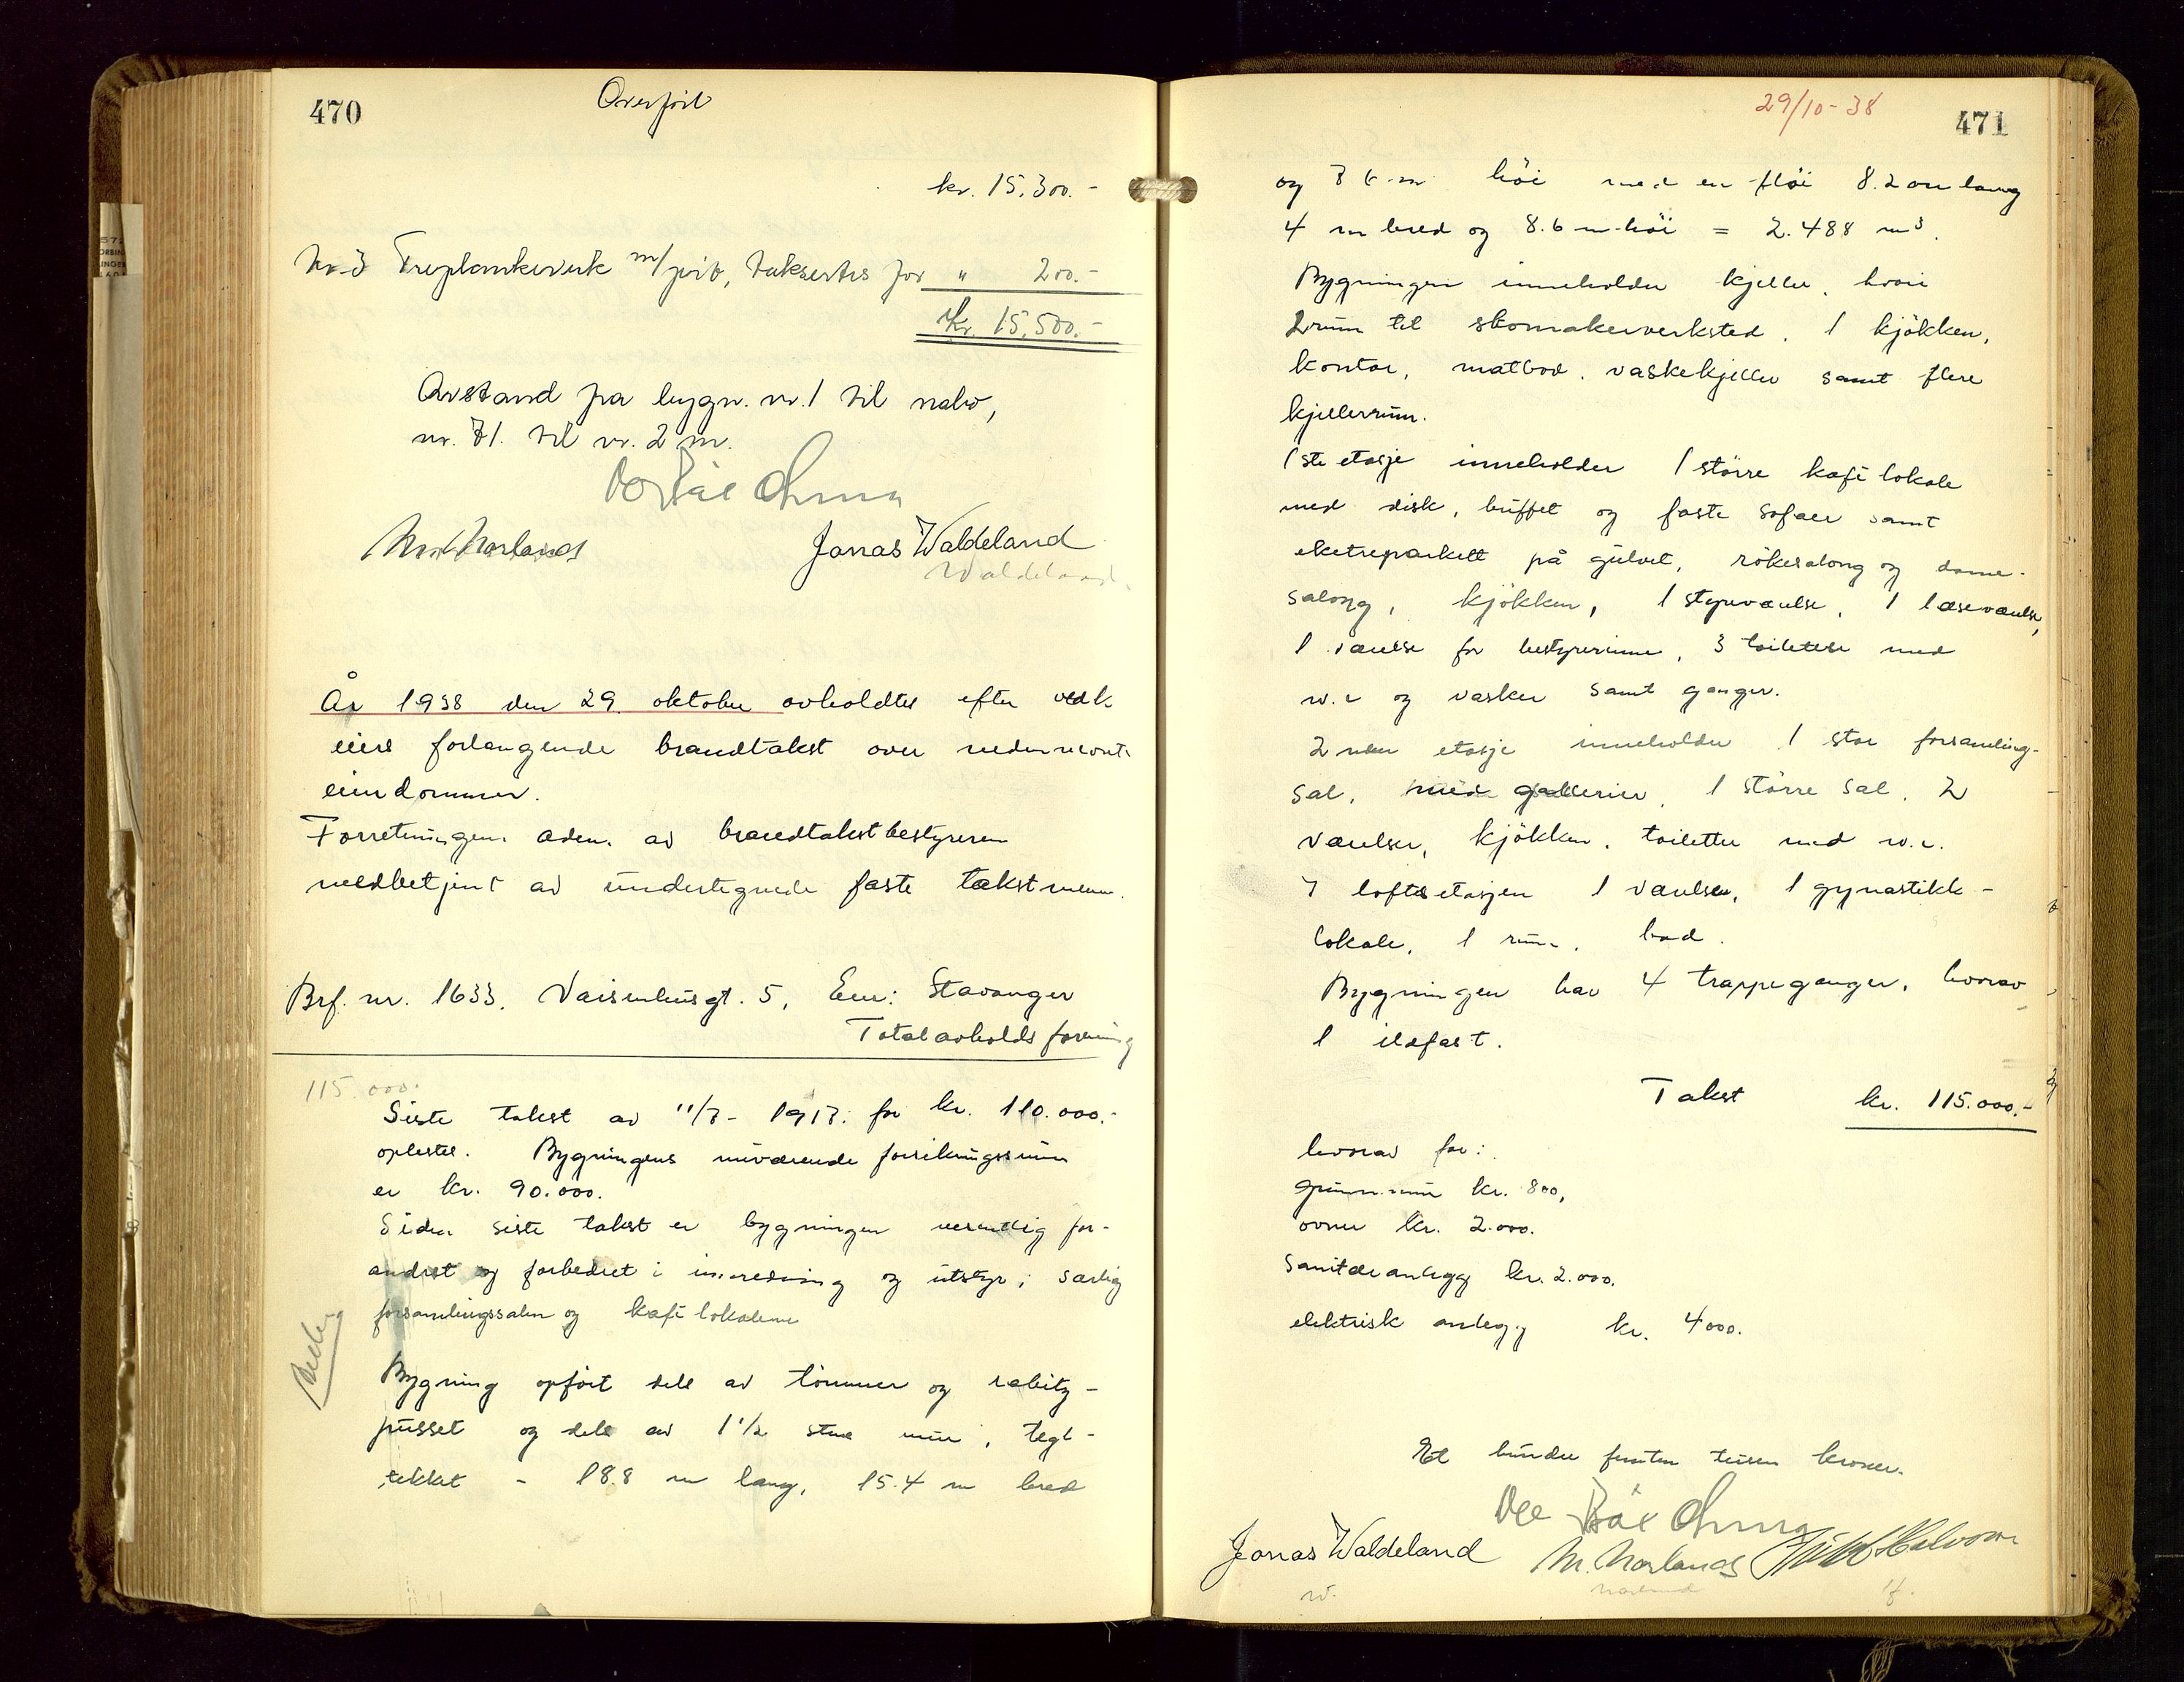 470
Overført
kr. 15.300.-
Nr. 3 Treplankeverk m/port, takseres for " 200.-
Kr. 15.500.-
Avstand fra bygn. nr. 1 til nabo,
nr. 71. til nr. 2 m.
M. Norland
Jonas Waldeland
Waldeland.
År 1938 den 29. oktober avholdtes efter vedk.
eiers forlangende brandtakst over nedennevnte
eiendommer.
Forretningen adm. av brandtakstbestyreren
medbetjent av undertegnede faste takstmenn.
Brf. nr. 1633. Vaisenhusgt. 5, Eier: Stavanger
Totalavholds forening
115.000.-
Siste takst av 11/7- 1917. for kr. 110.000.-
oplestes. Bygningens nuværende forsikringssum
er kr. 90.000.
Siden siste takst er bygningen vesentlig for-
andret og forbedret i innredning og utstyr, særlig
forsamlingssalen og kafé lokalene
Bygning opført dels av tømmer og rabitz-
pusset og dels av 1 1/2 stens mur, tegl-
tekket - 18.8 m lang, 15.4 m bred
29/10-38
471
og 7.6 m høi med en fløi 8.2 m lang
4 m bred og 8.6 m høi = 2.488 m³.
Bygningen inneholder kjeller, hvori
2 rum til skomakerverksted, 1 kjøkken,
kontor, matbod, vaskekjeller samt flere
kjellerrum.
1ste etasje inneholder 1 større kafé lokale
med disk, buffet og faste sofaer samt
eketreparkett på gulvet, røkesalong og dame-
salong, kjøkken, 1 styreværelse, 1 læseværelse,
1 værelse for bestyrerinne, 3 toiletter med
w.c og vasker samt ganger.
2nen etasje inneholder 1 stor forsamling-
sal, med gallerier, 1 større sal, 2
værelser, kjøkken, toiletter med w.c.
I loftsetasjen 1 værelse, 1 gynastikk-
lokale, 1 rum, bad.
Bygningen har 4 trappeganger, hvorav
1 ildfast.
Takst kr. 115.000.-
hvorav for:
grunnmur kr. 800,
ovner kr. 2.000.
Sanitæranlegg kr. 2.000.
elektrisk anlegg kr. 4000.
Et hundre femten tusen kroner.
Jonas Waldeland M. Norland Halvorsen
w. Norland